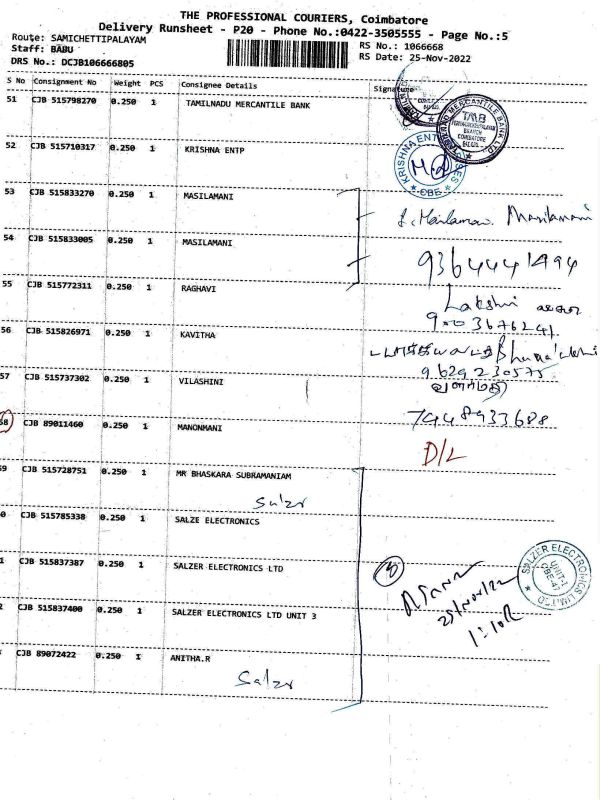 THE PROFESSIONAL COURIERS, Coimbatore
Delivery Runsheet - P20 - Phone No.:0422-3505555 - Page No.:5
Route: SAMICHETTIPALAYAM
RS No.: 1066668
Staff: BABU
RS Date: 25-Nov-2022
DRS No.: DCJB106666805
S No Consignment No Weight PCS Consignee Details Signature
51 CJB 515798270 0.250 1 TAMILNADU MERCANTILE BANK
TAMILNAD MERCANTILE BANK LTD
TMB
BRANCH
COIMBATORE
52 CJB 515710317 0.250 1 KRISHNA ENTP
KRISHNA ENTERPRISES
CBE
53 CJB 515833270 0.250 1 MASILAMANI
Masilamani
54 CJB 515833005 0.250 1 MASILAMANI
9364441494
55 CJB 515772311 0.250 1 RAGHAVI
Lakshmi
9003676241
56 CJB 515826971 0.250 1 KAVITHA
9629230575
57 CJB 515737302 0.250 1 VILASHINI
வளர்மதி
7448933688
58 CJB 89011460 0.250 1 MANONMANI
D/L
9 CJB 515728751 0.250 1 MR BHASKARA SUBRAMANIAM
Salzer
0 CJB 515785338 0.250 1 SALZE ELECTRONICS
1 CJB 515837387 0.250 1 SALZER ELECTRONICS LTD
SALZER ELECTRONICS LIMITED
UNIT-1
CBE-47
5
25/Nov/22
1:10
2 CJB 515837400 0.250 1 SALZER ELECTRONICS LTD UNIT 3
CJB 89072422 0.250 1 ANITHA.R
Salzer